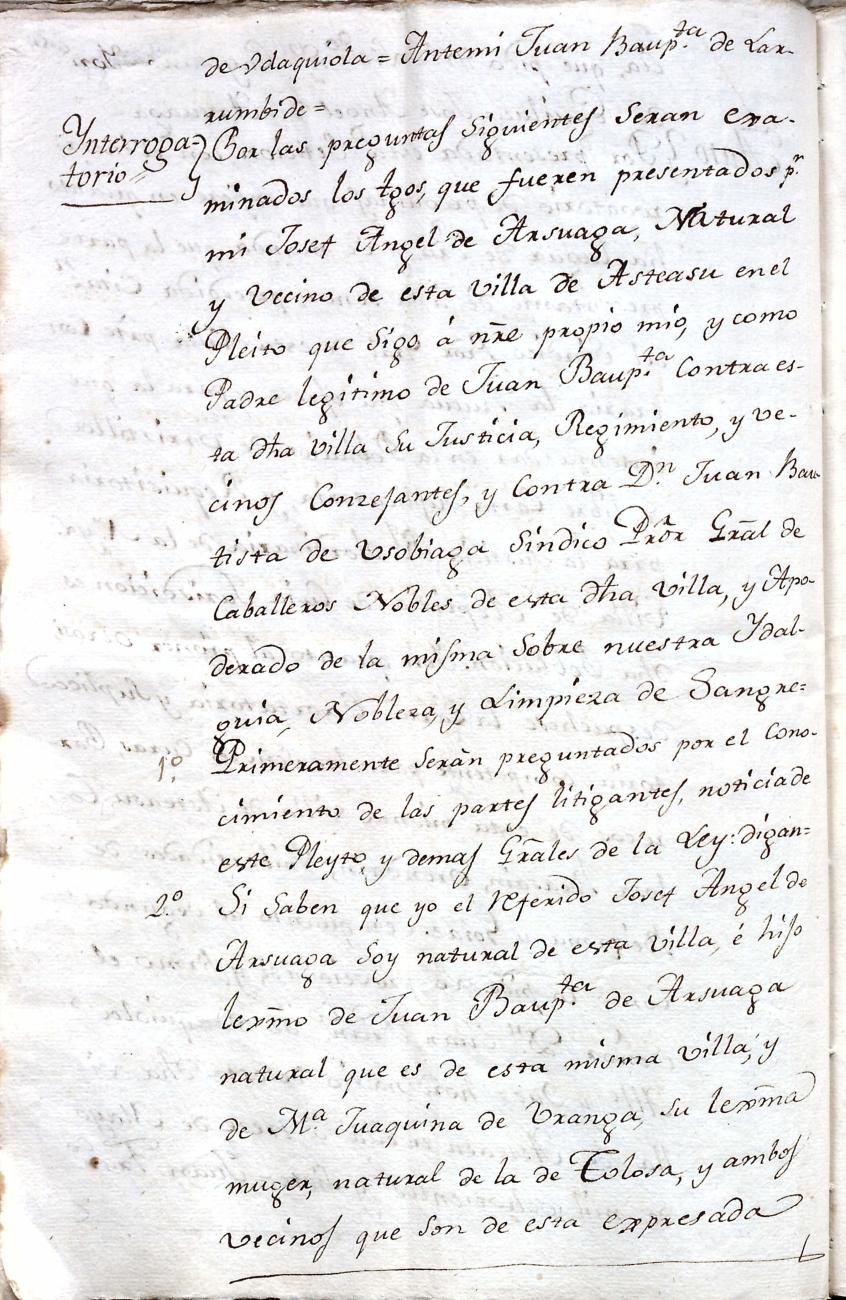 de Vdaquiola = Antemi Juan Baup.ta de Lar-
rumbide=
Ynterroga=
torio=
Por las preguntas Siguientes Seran exa-
minados los tgos, que fueren presentados p.r
mi Josef Angel de Arsuaga, Natural
y Vecino de esta villa de Asteasu en el
Pleito que Sigo á nre propio mio, y como
Padre legitimo de Juan Baup.ta Contra es-
ta dha villa Su Justicia, Regimiento, y ve-
cinos Conzejantes, y Contra D.n Juan Bau
tista de Vsobiaga Sindico Pror Gral de
Caballeros Nobles de esta dha villa, y Apo-
derado de la misma Sobre nuestra Ydal-
guia, Nobleza, y Limpieza de Sangre=
1.o Primeramente Seràn preguntados por el Cono-
cimiento de las partes litigantes, noticia de
este Pleyto, y demas Grales de la Ley: digan=
2.o Si Saben que yo el referido Josef Angel de
Arsuaga Soy natural de esta villa, é hijo
lexmo de Juan Baup.ta de Arsuaga
natural que es de esta misma villa, y
de M.a Juaquina de Vranga, su lexma
muger, natural de la de Tolosa, y ambos
vecinos que son de esta expresada